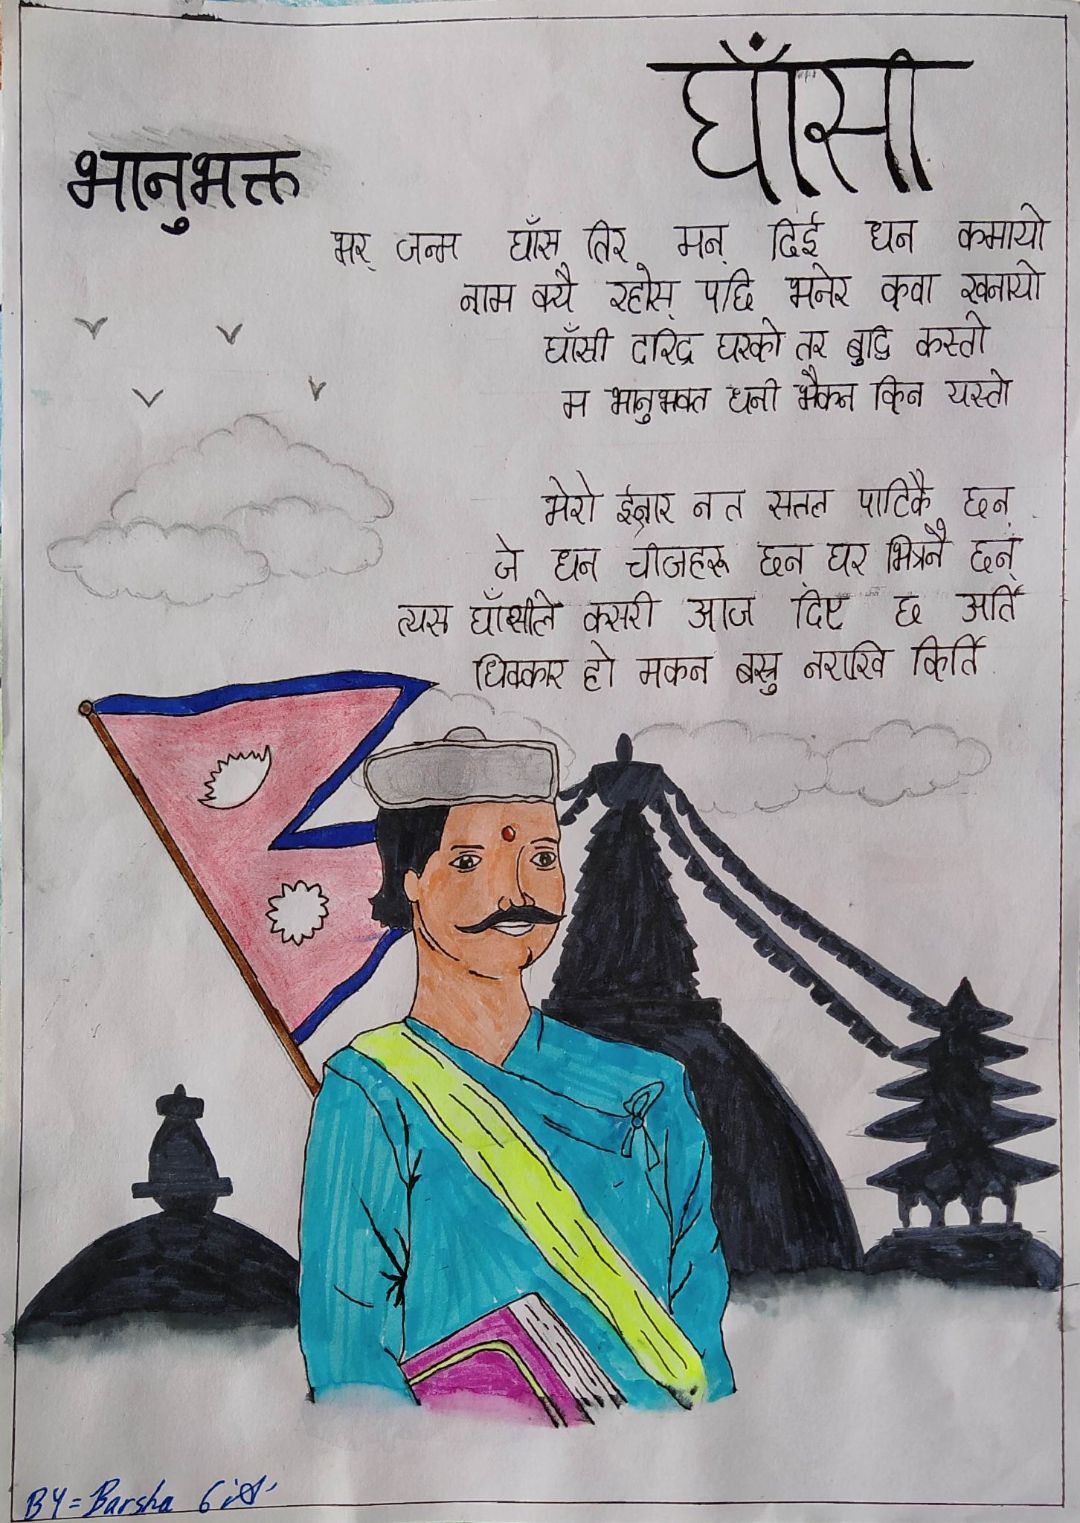 घाँसी
भानुभक्त
भर् जन्म घाँस् तिर मन् दिई धन कमायो
नाम क्यै रहोस् पछि भनेर कुवा खनायो
घाँसी दरिद्र घरको तर बुद्धि कस्तो
म भानुभक्त धनी भैकन किन यस्तो
मेरो ईनार न त सतल पाटिकै छन्
जे धन चीजहरू छन् घर भित्रनै छन्
त्यस घाँसीले कसरी आज दिए छ अर्ति
धिक्कार हो मकन बस्नु नराखि किर्ति
BY= Barsha